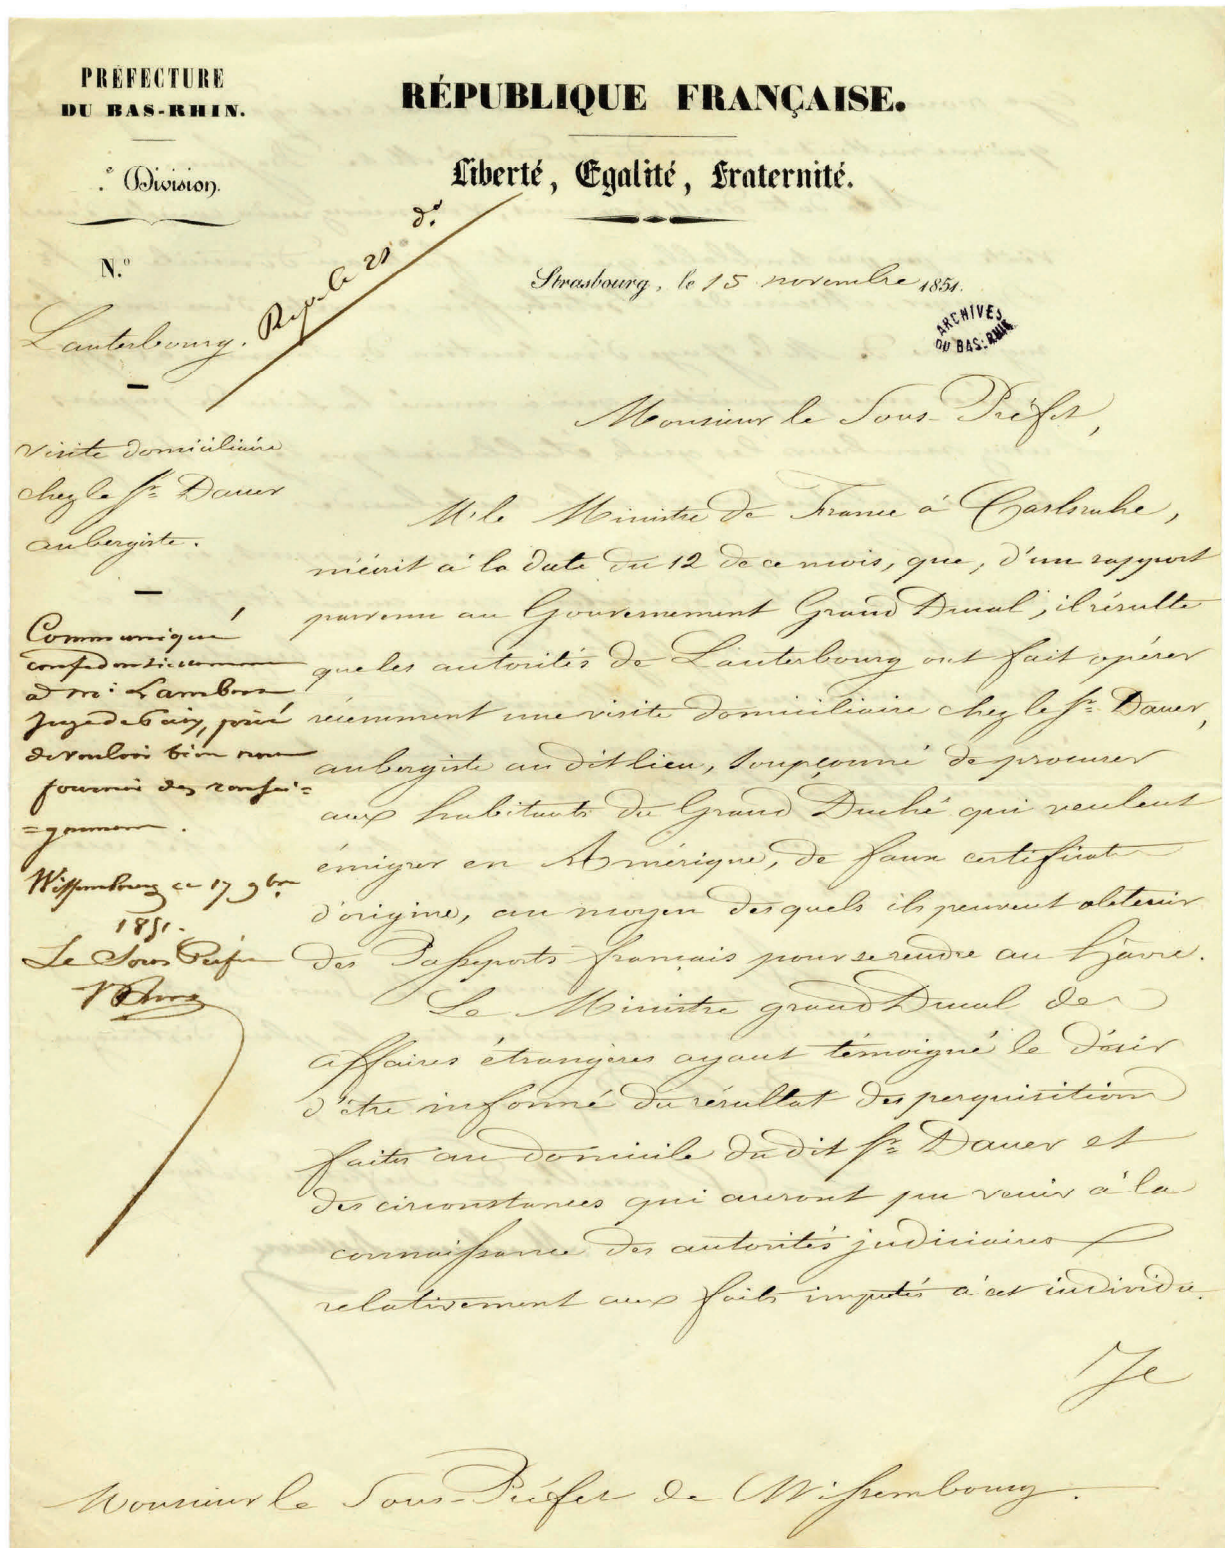 PRÉFECTURE
DU BAS-RHIN.
.e Division.
N.o
RÉPUBLIQUE FRANÇAISE.
Liberté, Egalité, Fraternité.
Strasbourg, le 15 novembre 1851.
ARCHIVES
DU BAS-RHIN
Lauterbourg.
visite domiciliaire
chez le Sr. Dauer
aubergiste.
Communiqué
confidentiellement
à mr. Lambert
Juge de Paix, prié
de vouloir bien nous
fournir des rensei=
=gnemens.
Wissembourg ce 17 9bre
1851.
Le Sous Préfet
Monsieur le Sous-Préfet,
Mr. le Ministre de France à Carlsruhe,
m'écrit à la date du 12 de ce mois, que, d'un rapport
parvenu au Gouvernement Grand Ducal, il résulte
que les autorités de Lauterbourg ont fait opérer
récemment une visite domiciliaire chez le Sr. Dauer,
aubergiste au dit lieu, soupçonné de procurer
aux habitants du Grand Duché qui veulent
émigrer en Amérique, de faux certificats
d'origine, au moyen desquels ils peuvent obtenir
des Passeports français pour se rendre au Hâvre.
Le Ministre grand Ducal des
affaires étrangères ayant témoigné le désir
d'être informé du résultat des perquisitions
faites au domicile du dit Sr. Dauer et
des circonstances qui auront pu venir à la
connaissance des autorités judiciaires
relativement aux faits imputés à cet individu.
Je
Monsieur le Sous-Préfet de Wissembourg.